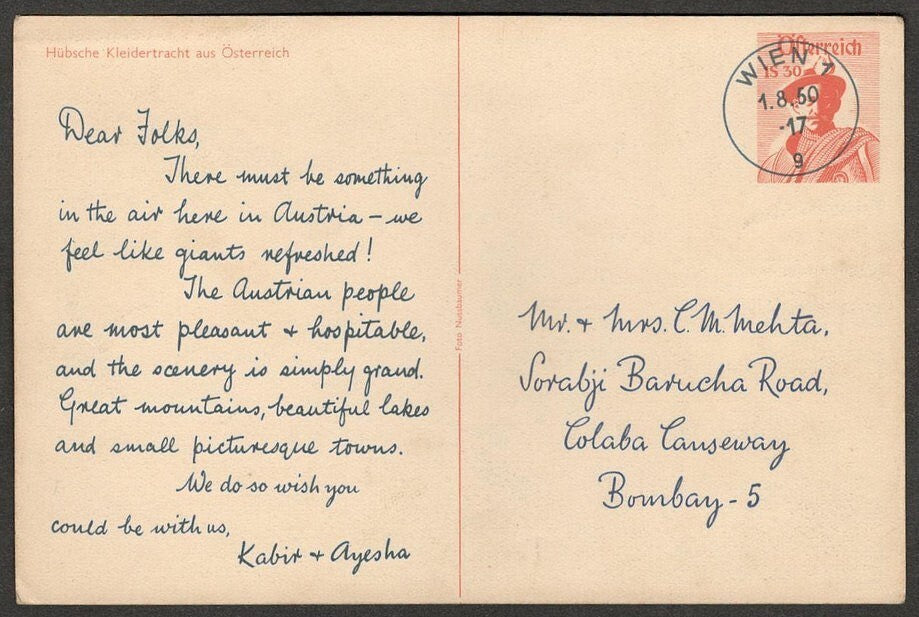 Hübsche Kleidertracht aus Österreich
Dear Folks,
There must be something
in the air here in Austria – we
feel like giants refreshed!
The Austrian people
are most pleasant + hospitable,
and the scenery is simply grand.
Great mountains, beautiful lakes
and small picturesque towns.
We do so wish you
could be with us,
Kabir + Ayesha
Foto Nussbaumer
Österreich
1S 30
WIEN 1
1.8.50
-17
9
Mr. + Mrs. C. M. Mehta,
Sorabji Barucha Road,
Colaba Causeway
Bombay - 5